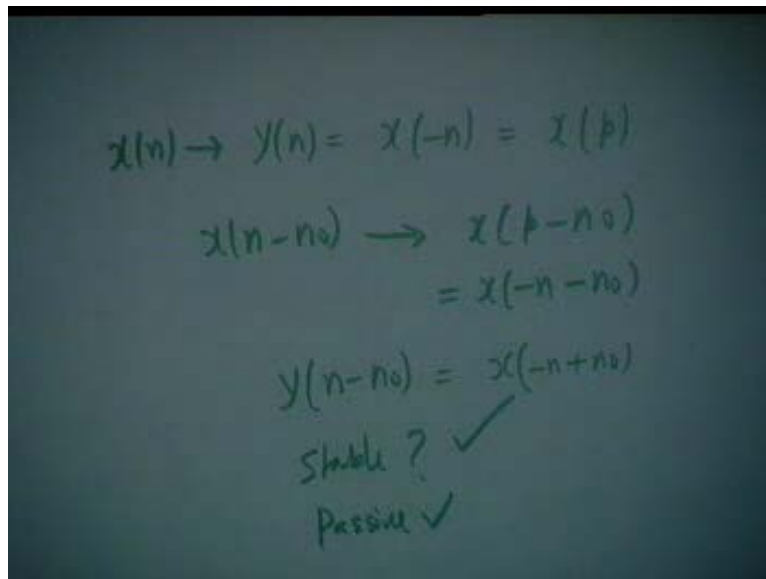 x(n) → y(n) = x(-n) = x(p)
x(n-n₀) → x(p-n₀)
= x(-n-n₀)
y(n-n₀) = x(-n+n₀)
Stable ? ✓
Passive ✓